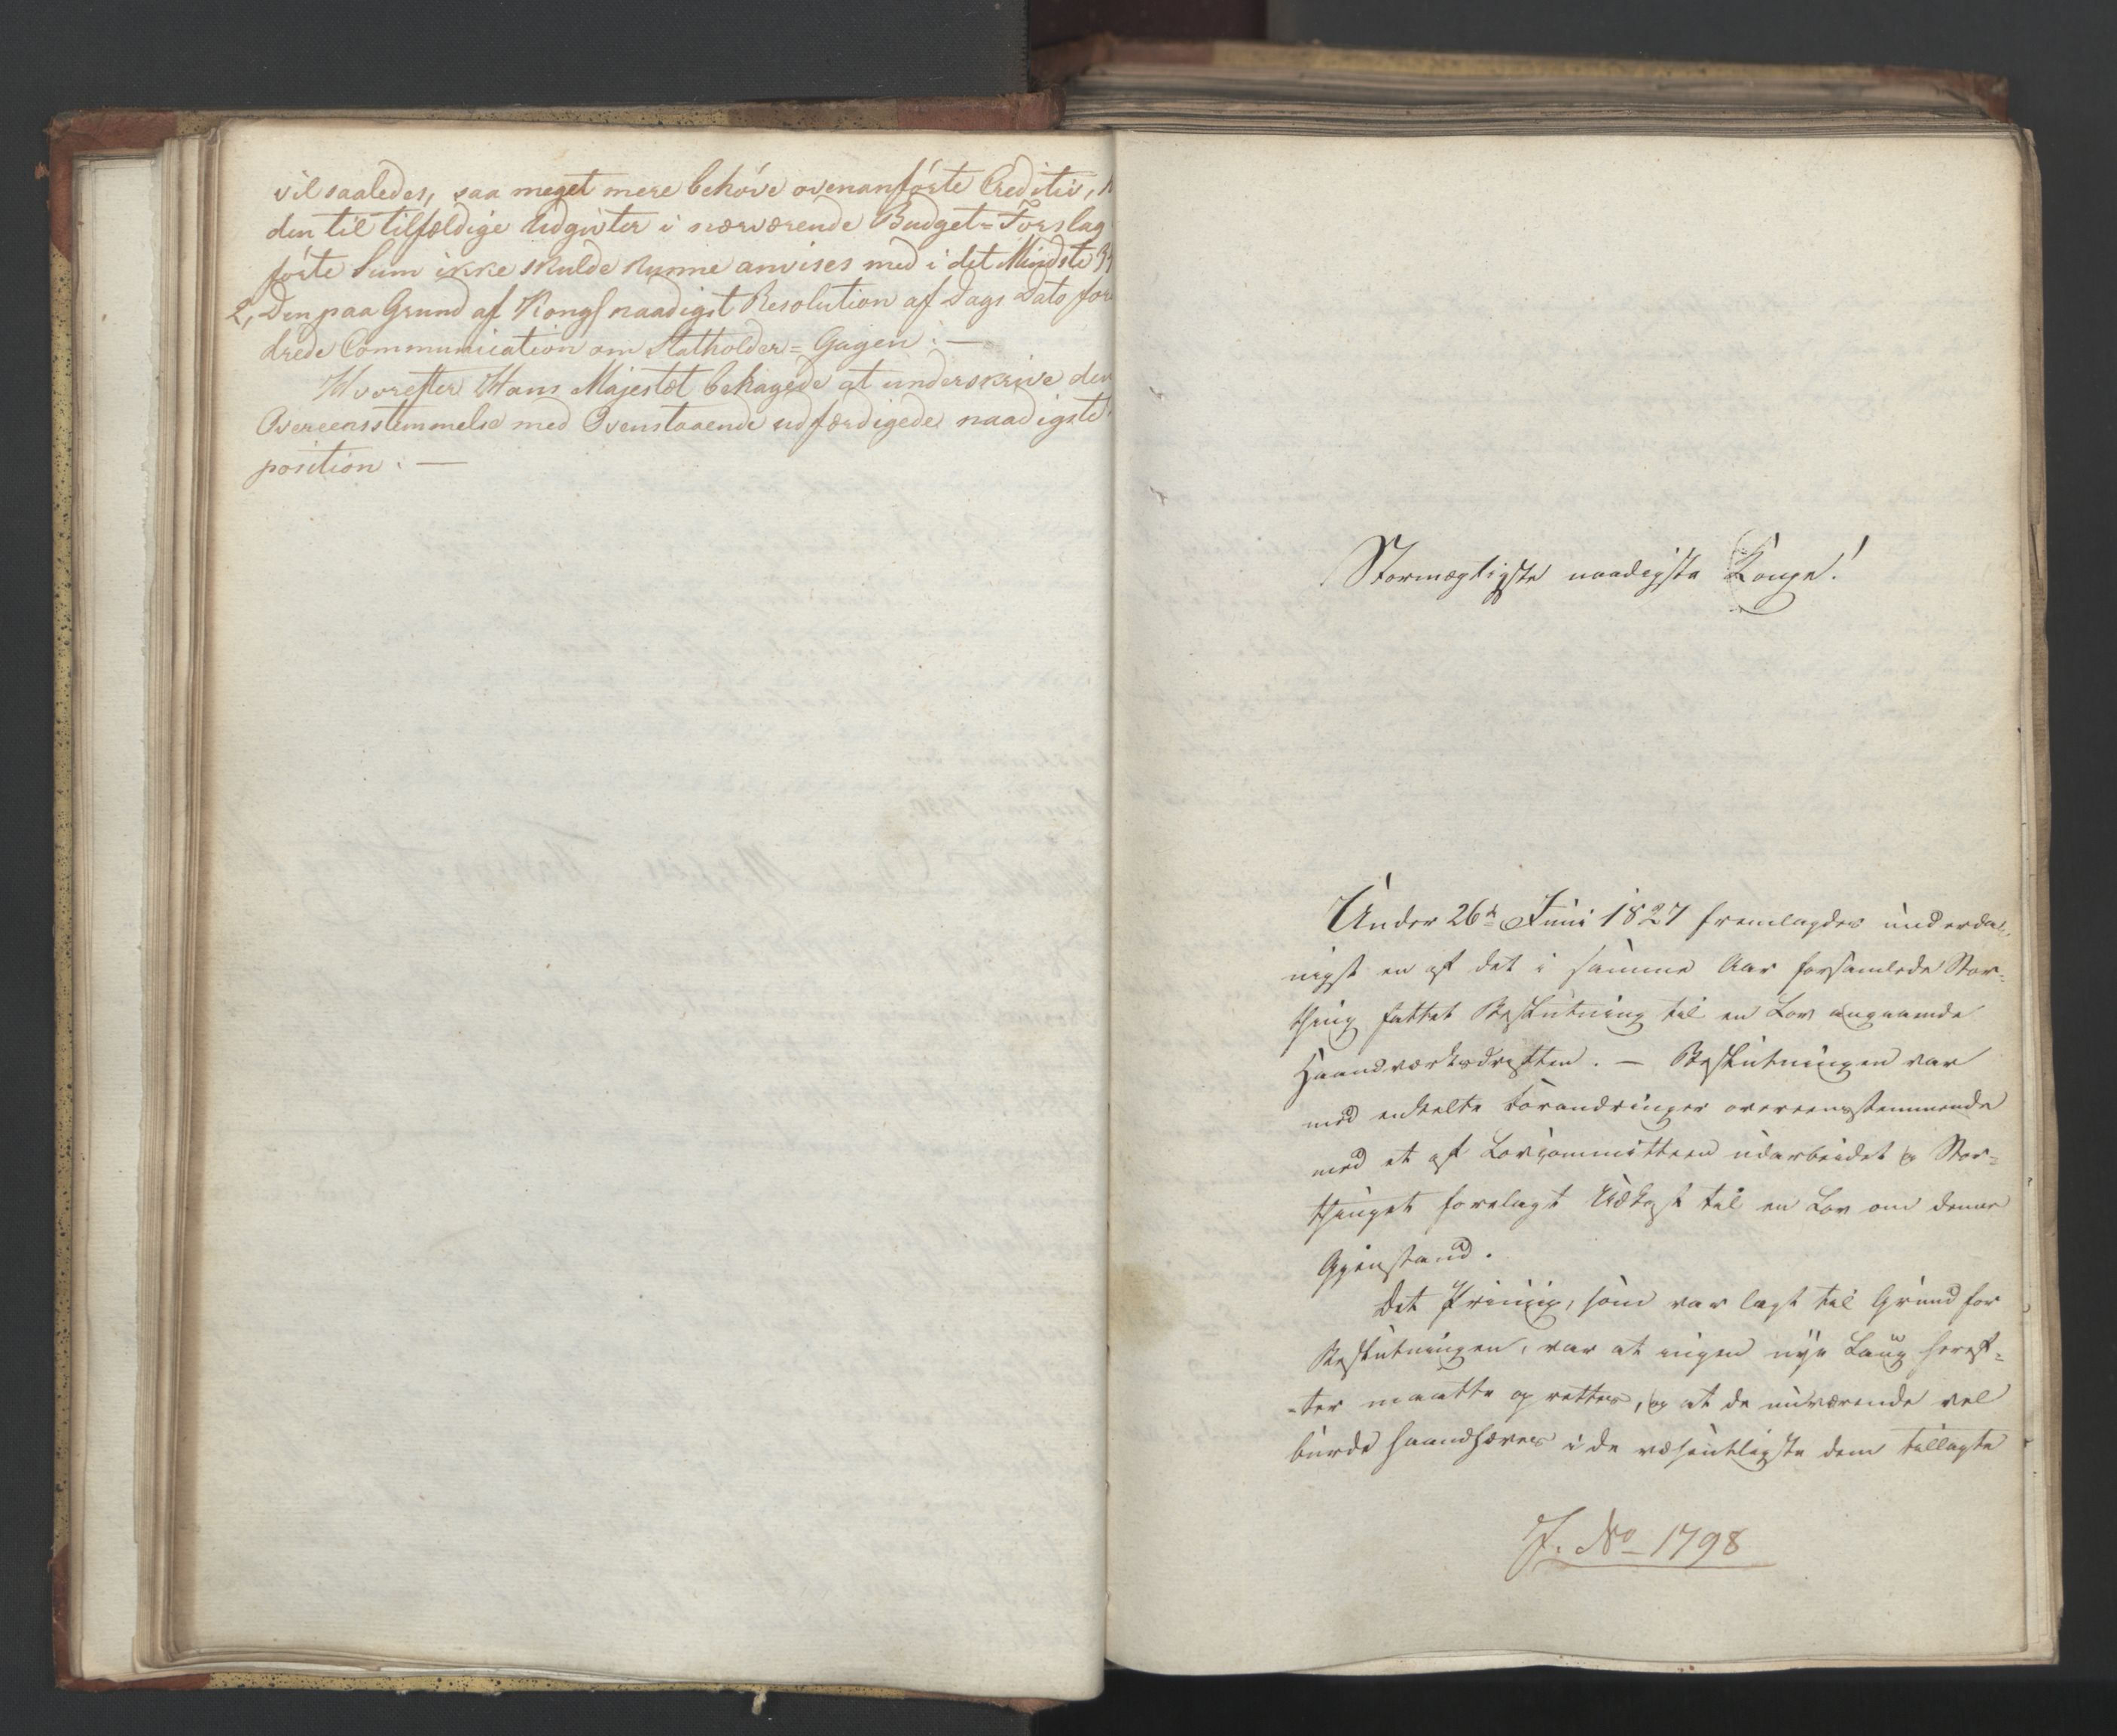 vil saaledes, saa meget mere behöve ovenanförte Creditiv,
den til tilfældige Udgivter i nærværende Budget=Forslag
förte Sum ikke skulde kunne anvises med i det Mindste
2, Den paa Grund af Kongl naadigst Resolution af Dags Dato for
drede Communication om Statholder=Gagen: —
Hvorefter Hans Majestæt behagede at underskrive den
Overeensstemmelse med Ovenstaaende udfærdigede naadigste
position: —
Stormægtigste naadigste Konge!
Under 26de Juni 1827 fremlagdes underda-
nigst en af det i samme Aar forsamlede Stor=
thing fattet Beslutning til en Lov angaaende
Haandværksdriften. — Beslutningen var
med enkelte Forandringer overeensstemmende
med et af Lovcommitteen udarbeidet og Stor=
thinget forelagt Udkast til en Lov om denne
Gjenstand.
Det Princip, som var lagt til Grund for
Beslutningen, var at ingen nye Laug heref=
=ter maatte oprettes, og at de nuværende vel
burde haandhæves i de væsentligste dem tillagte
J. No 1798